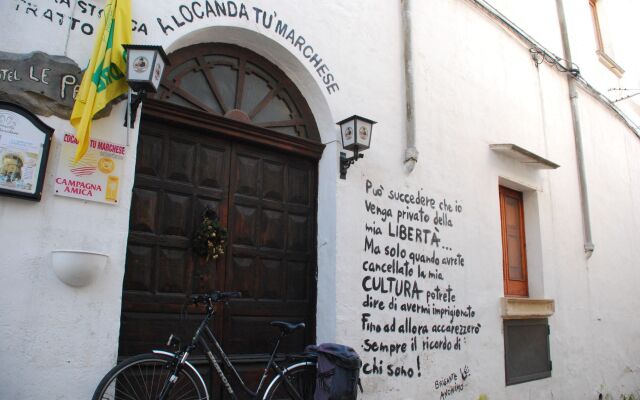 TRATTO
LA LOCANDA TU' MARCHESE
LE PE
LOCANDA TU' MARCHESE
CAMPAGNA
AMICA
Può succedere che io
venga privato della
mia LIBERTÀ...
Ma solo quando avrete
cancellato la mia
CULTURA potrete
dire di avermi imprigionato
Fino ad allora accarezzerò
sempre il ricordo di
chi sono!
BRIGANTE
ANONIMO